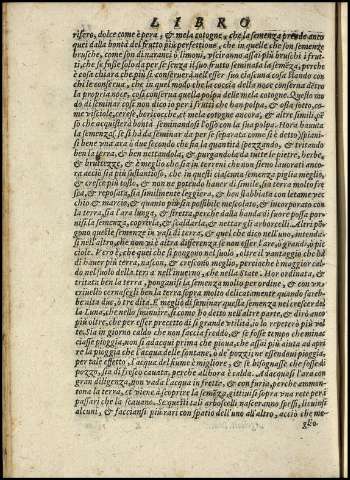 LIBRO
risero, dolce come è pera, & mela cotogne, che la semenza prende anco
quei dalla bontà del frutto più perfettione, che in quelle che son semenze
brusche, come son di naranci ò limoni, vsciranno assai più bruschi i frut-
ti, che se fusse solo da per se senza il suo frutto seminata la semẽza, perche
è cosa chiara che più si conseruerà nell'esser suo ciascuna cosa stando con
chi le conserua, che in quel mollo che la coccia della noce conserua dẽtro
la propria noce, così conserua quella polpa delle mela cotogne. Questo mo
do di seminar così non dico io per i frutti che han polpa, & ossa sotto, co-
me visciole, cerase, bericocche, et mele cotogne ancora, & altre simili, pe
rò che acquisterà bontà seminandosi l'osso con la sua polpa. Hora hauuta
la semenza, se si hà da seminar da per se separata come si è detto, spiani-
si bene vna ara ò due secondo che sia la quantità spezzando, & tritando
ben la terra, & ben nettandola, & purgandola da tutte le pietre, herbe,
& bruttezze, & è meglio che sia in terreno che non siano lauorati anco-
ra acciò sia più sustantioso, che in questi ciascuna semenza piglia meglio,
& cresce più tosto, & non ne potendo hauer di simile, sia terra molto fre
sca, & riposata, sia similmente leggiera, & ben stabbiata con letame vec
chio & marcio, & quanto più sia possibile mescolato, & incorporato con
la terra, sia l'ara lunga, & stretta, perche dalla banda di fuore possa por-
nisi la semenza, coprirla, & scaldarla, & nettar gli arborcelli. Altri põ-
gono quelle semenze in vasi di terra, & quel che dico nell'uno, intenda-
si nell'altro, che non vi è altra differenza se non esser l'are, ò grandi, ò pic
ciole. Però è, che quei che si pongono nei vasi, oltre il vantaggio che hã
di hauer più terra, nascono, & crescono meglio, percioche è maggior cal-
do nel suolo della terra nell'inuerno, che nella state. Hor ordinata, &
tritata ben la terra, ponganuisi la semenza molto per ordine, & con vn
criuello cernasegli ben la terra sopra molto delicatamente quando sareb-
be alta due, ò tre dita. E meglio di seminar questa semenza nel crescer del
la Luna, che nello sminuire, si come hò detto nell'altre parte, & dirò anco
più oltre, che per esser precetto di sì grande vtilità, io lo repeterò più vol
te. Sia in giorno caldo che non faccia freddo, & se fosse tempo che minac
ciasse pioggia, non si adacqui prima che pioua, che assai più aiuta ad apri
re la pioggia che l'acqua delle fontane, ò de pozzi; ne essendoui pioggia,
per tale effetto l'acqua del fiume è migliore, & se bisognasse che fosse di
pozzo, sia di fresco cauata, perche allhora è calda. Adacquasi l'ara con
gran diligenza, non vada l'acqua in fretta, & con furia, perche ammon-
tona la terra, et viene à scoprire la semenza, gittiuisi sopra vna rete per i
passari che la scauano. Se questi tali arboscelli nasceranno spessi, leuinsi
alcuni, & faccinsi più rari con spatio dell'uno all'altro, acciò che me-
glio